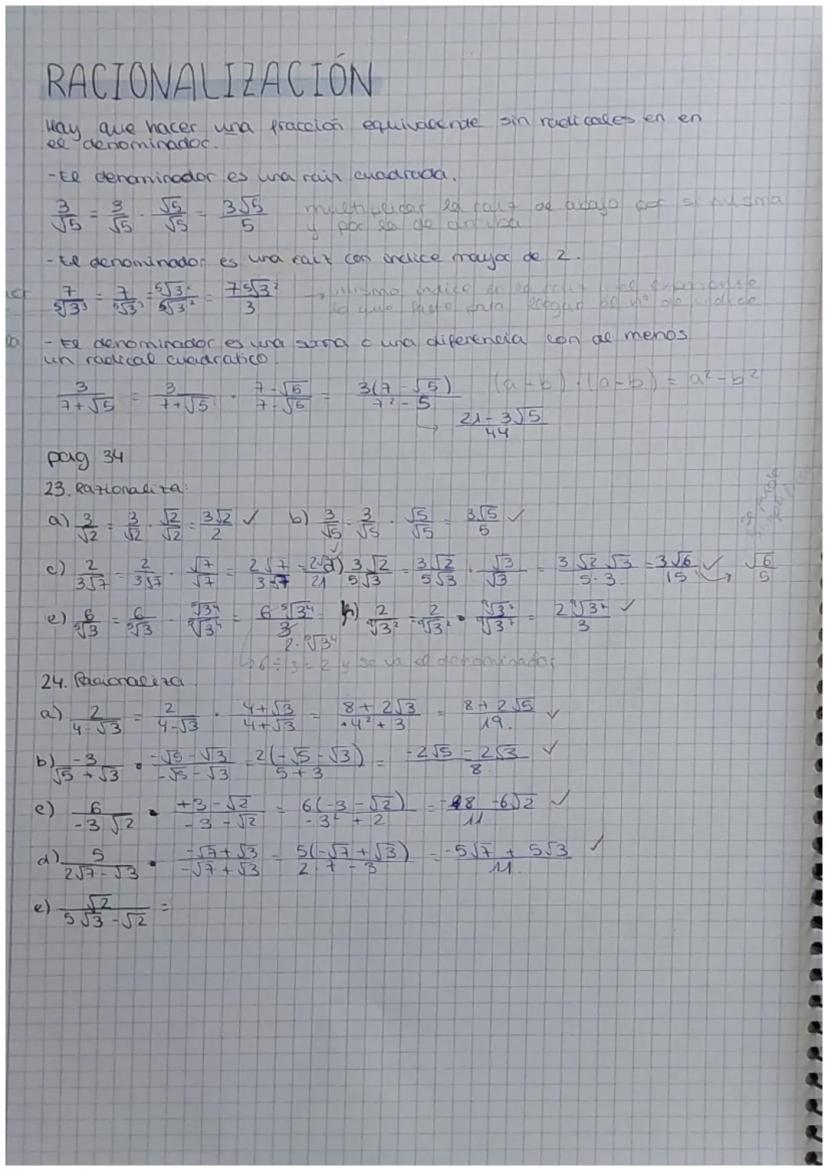 RACIONALIZACIÓN
Hay que hacer una fracción equivalente sin radicales en en
el denominador.
- El denominador es una raíz cuadrada.
3/√5 = 3/√5 · √5/√5 = 3√5/5 multiplicar la raiz de abajo por si misma
y por la de arriba
- El denominador es una raiz con indice mayor de 2.
7/⁵√3³ = 7/⁵√3³ = ⁵√3²/⁵√3² = 7⁵√3²/3
- El denominador es una suma o una diferencia con al menos
un radical cuadratico.
3/(7+√5) = 3/(7+√5) · (7-√5)/(7-√5) = 3(7-√5)/(7²-5) (a-b)·(a-b) = a²-b²
→ (21-3√5)/44
pag 34
23. Rationaliza:
a) 3/√2 = 3/√2 · √2/√2 = 3√2/2 ✓ b) 3/√5 = 3/√5 · √5/√5 = 3√5/5 ✓
c) 2/3√7 = 2/3√7 · √7/√7 = 2√7/3√7 = 2√7/21 ✓ d) 3√2/5√3 = 3√2/5√3 · √3/√3 = 3√2√3/5·3 = 3√6/15 ✓ → √6/5
e) 6/⁵√3 = 6/⁵√3 · ⁵√3⁴/⁵√3⁴ = 6⁵√3⁴/3 2/√3² = 2/√3² · = 2/3 ✓
2·⁵√3⁴
↳ 6÷3=2 y se va el denominador
24. Racionaliza
a) 2/(4-√3) = 2/(4-√3) · (4+√3)/(4+√3) = (8+2√3)/(4²+3) = (8+2√5)/19. ✓
b) -3/(√5+√3) · (-√5-√3)/(-√5-√3) = 2(-√5-√3)/(5+3) = (-2√5-2√3)/8 ✓
c) 6/(-3√2) · (+3-√2)/(-3-√2) = 6(-3-√2)/(-3²+2) = (-18-6√2)/11 ✓
d) 5/(2√7-√3) · (-√7+√3)/(-√7+√3) = 5(-√7+√3)/(2·7-3) = (-5√7+5√3)/11. ✓
e) √2/(5√3-√2) =